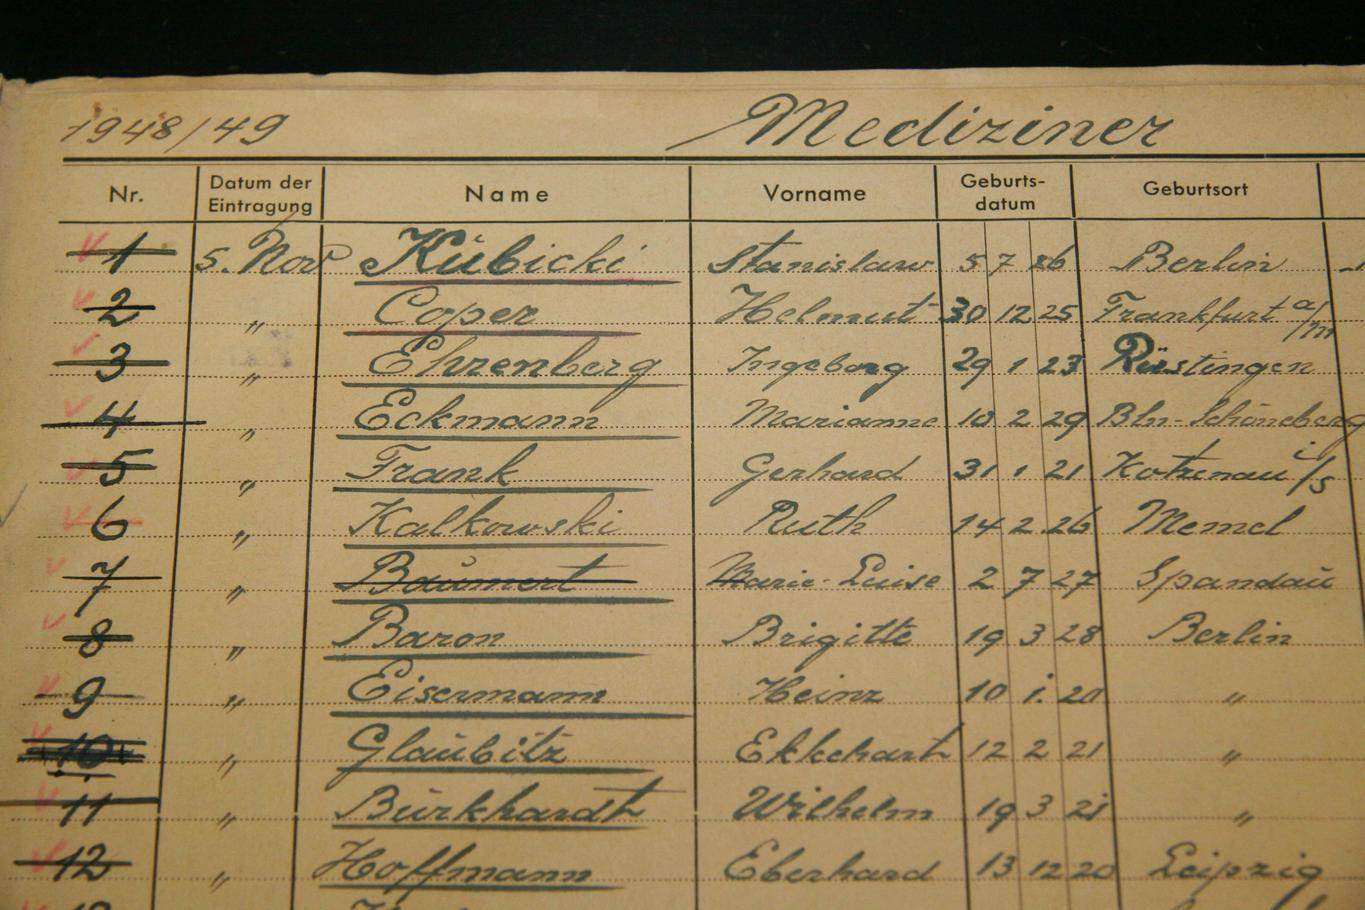 1948/49 Mediziner
Nr. Datum der Eintragung Name Vorname Geburts-datum Geburtsort
1 5. Nov Kubicki Stanislaw 5 7 26 Berlin
2 " Coper Helmut 30 12 25 Frankfurt a/m
3 " Ehrenberg Ingeborg 29 1 23 Rüstingen
4 " Eckmann Marianne 10 2 29 Bln-Schöneberg
5 " Frank Gerhard 31 1 21 Kotzenau i/s
6 " Kalkowski Ruth 14 2 26 Memel
7 " Baumert Marie-Luise 2 7 27 Spandau
8 " Baron Brigitte 19 3 28 Berlin
9 " Eisermann Heinz 10 1. 20 "
10 " Glaubitz Ekkehart 12 2 21 "
11 " Burkhardt Wilhelm 19 3 21 "
12 " Hoffmann Eberhard 13 12 20 Leipzig